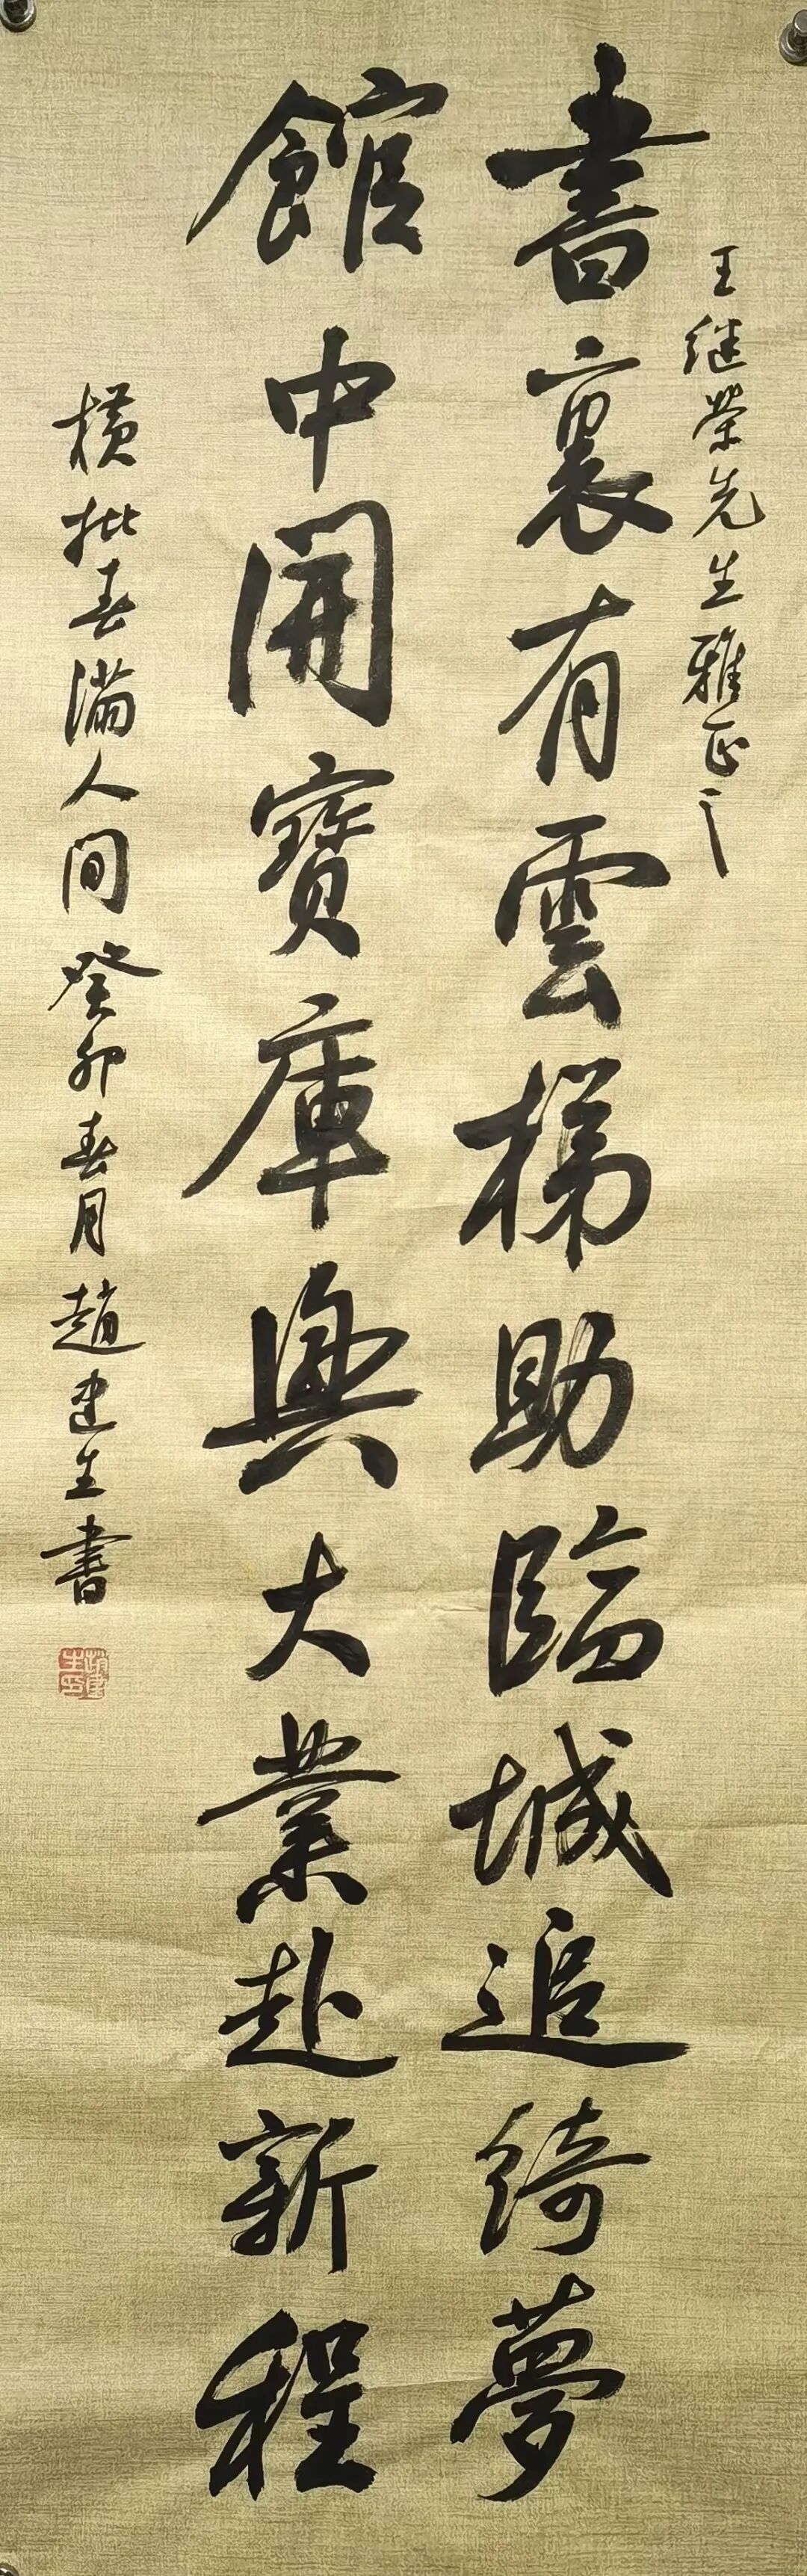 王继荣先生雅正之
書裏有雲梯助臨城追綺夢
館中開寶庫興大業赴新程
橫批春滿人间癸卯春月趙建生書
趙建生印